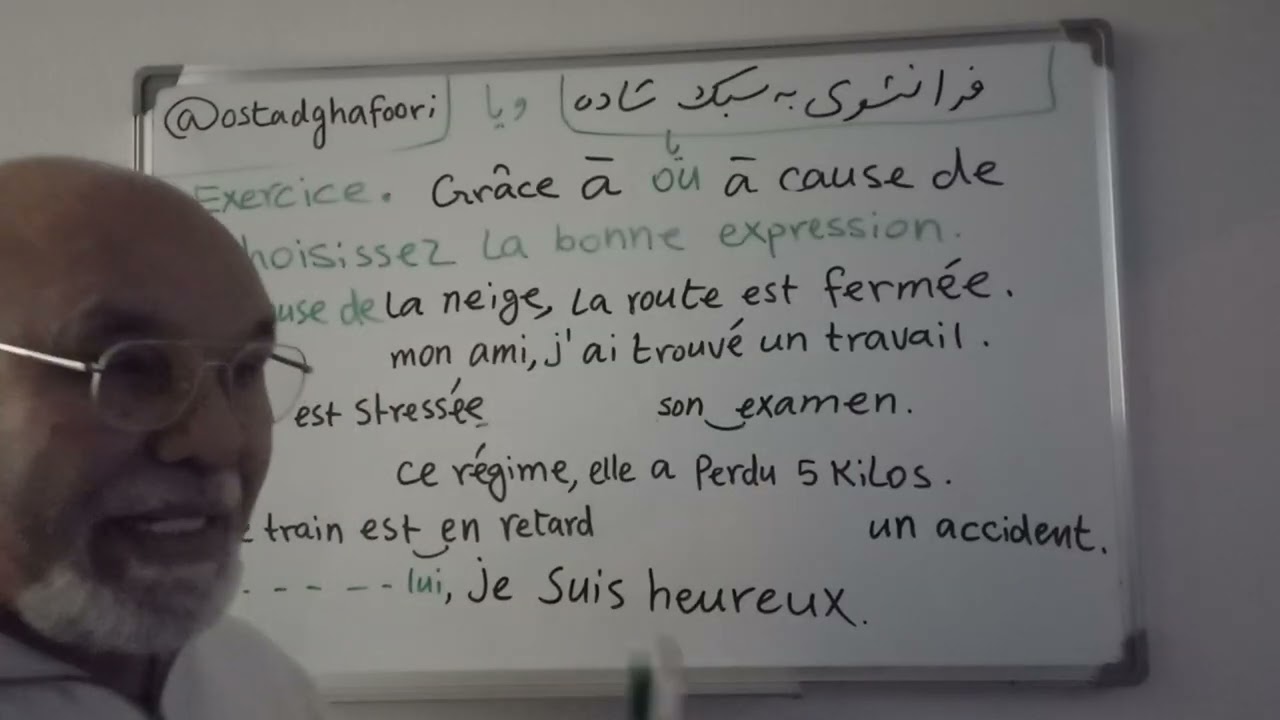 @ostadghafoori و یا فرانسوی به سبک ساده
یا
Exercice. Grâce ā oū ā cause de
hoisissez la bonne expression.
use de la neige, la route est fermée.
mon ami, j'ai trouvé un travail.
est stressée son examen.
ce régime, elle a perdu 5 kilos.
train est en retard un accident.
- - - - - lui, je suis heureux.